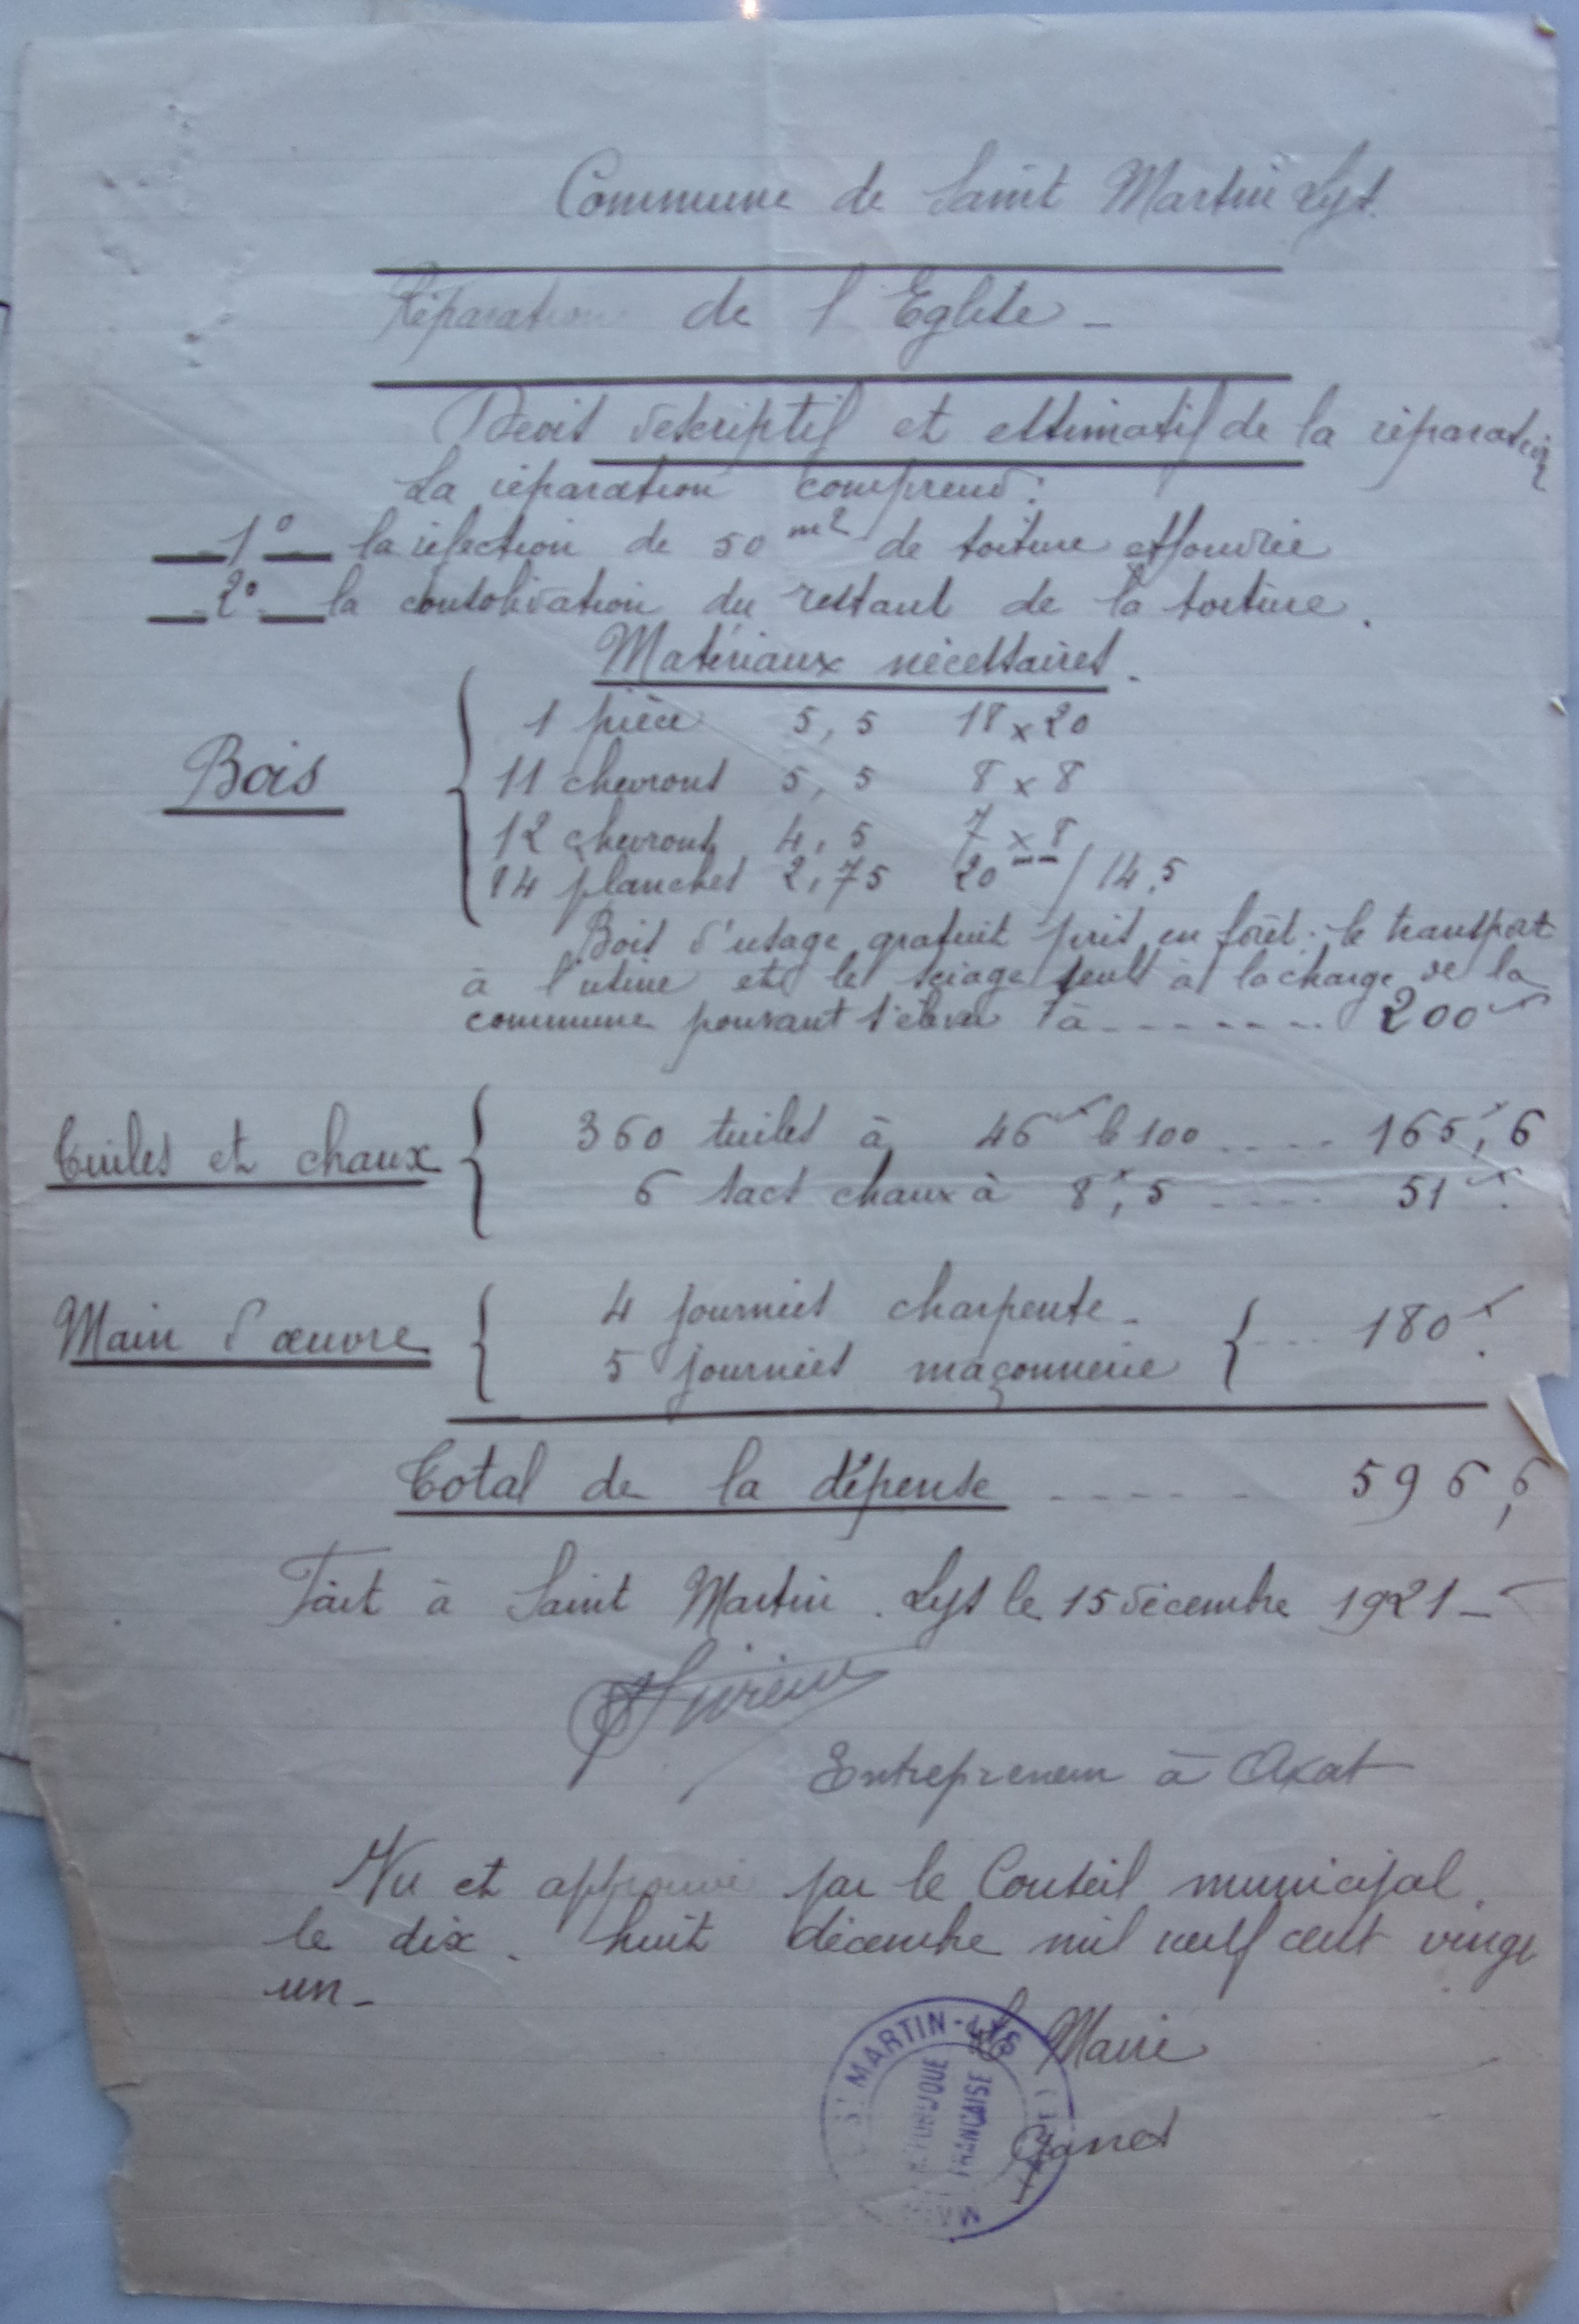 Commune de Saint Martin Lys.
Réparation de l'Eglise -
Devis descriptif et estimatif de la réparation
La réparation comprend :
1° la réfection de 50 m2 de toiture effondrée
2° la consolidation du restant de la toiture.
Matériaux nécessaires.
Bois
1 pièce 5,5 18 x 20
11 chevrons 5,5 8 x 8
12 chevrons 4,5 7 x 8
14 planches 2,75 20 / 14,5
Bois d'usage gratuit pris en forêt. le transport
à l'usine et le sciage seuls à la charge de la
commune pouvant s'élever à - - - - - - - 200 f
Tuiles et chaux
360 tuiles à 46 f le 100 .... 165 f, 6
6 sacs chaux à 8 f, 5 .... 51 f.
Main d'œuvre
4 journées charpente -
5 journées maçonnerie ... 180 f.
Total de la dépense - - - - - - 596,6
Fait à Saint Martin. Lys le 15 décembre 1921 -
Entrepreneur à Axat
Vu et approuvé par le Conseil municipal.
le dix. huit décembre mil neuf cent vingt
un -
Le Maire
ST MARTIN-LYS
RÉPUBLIQUE
FRANÇAISE